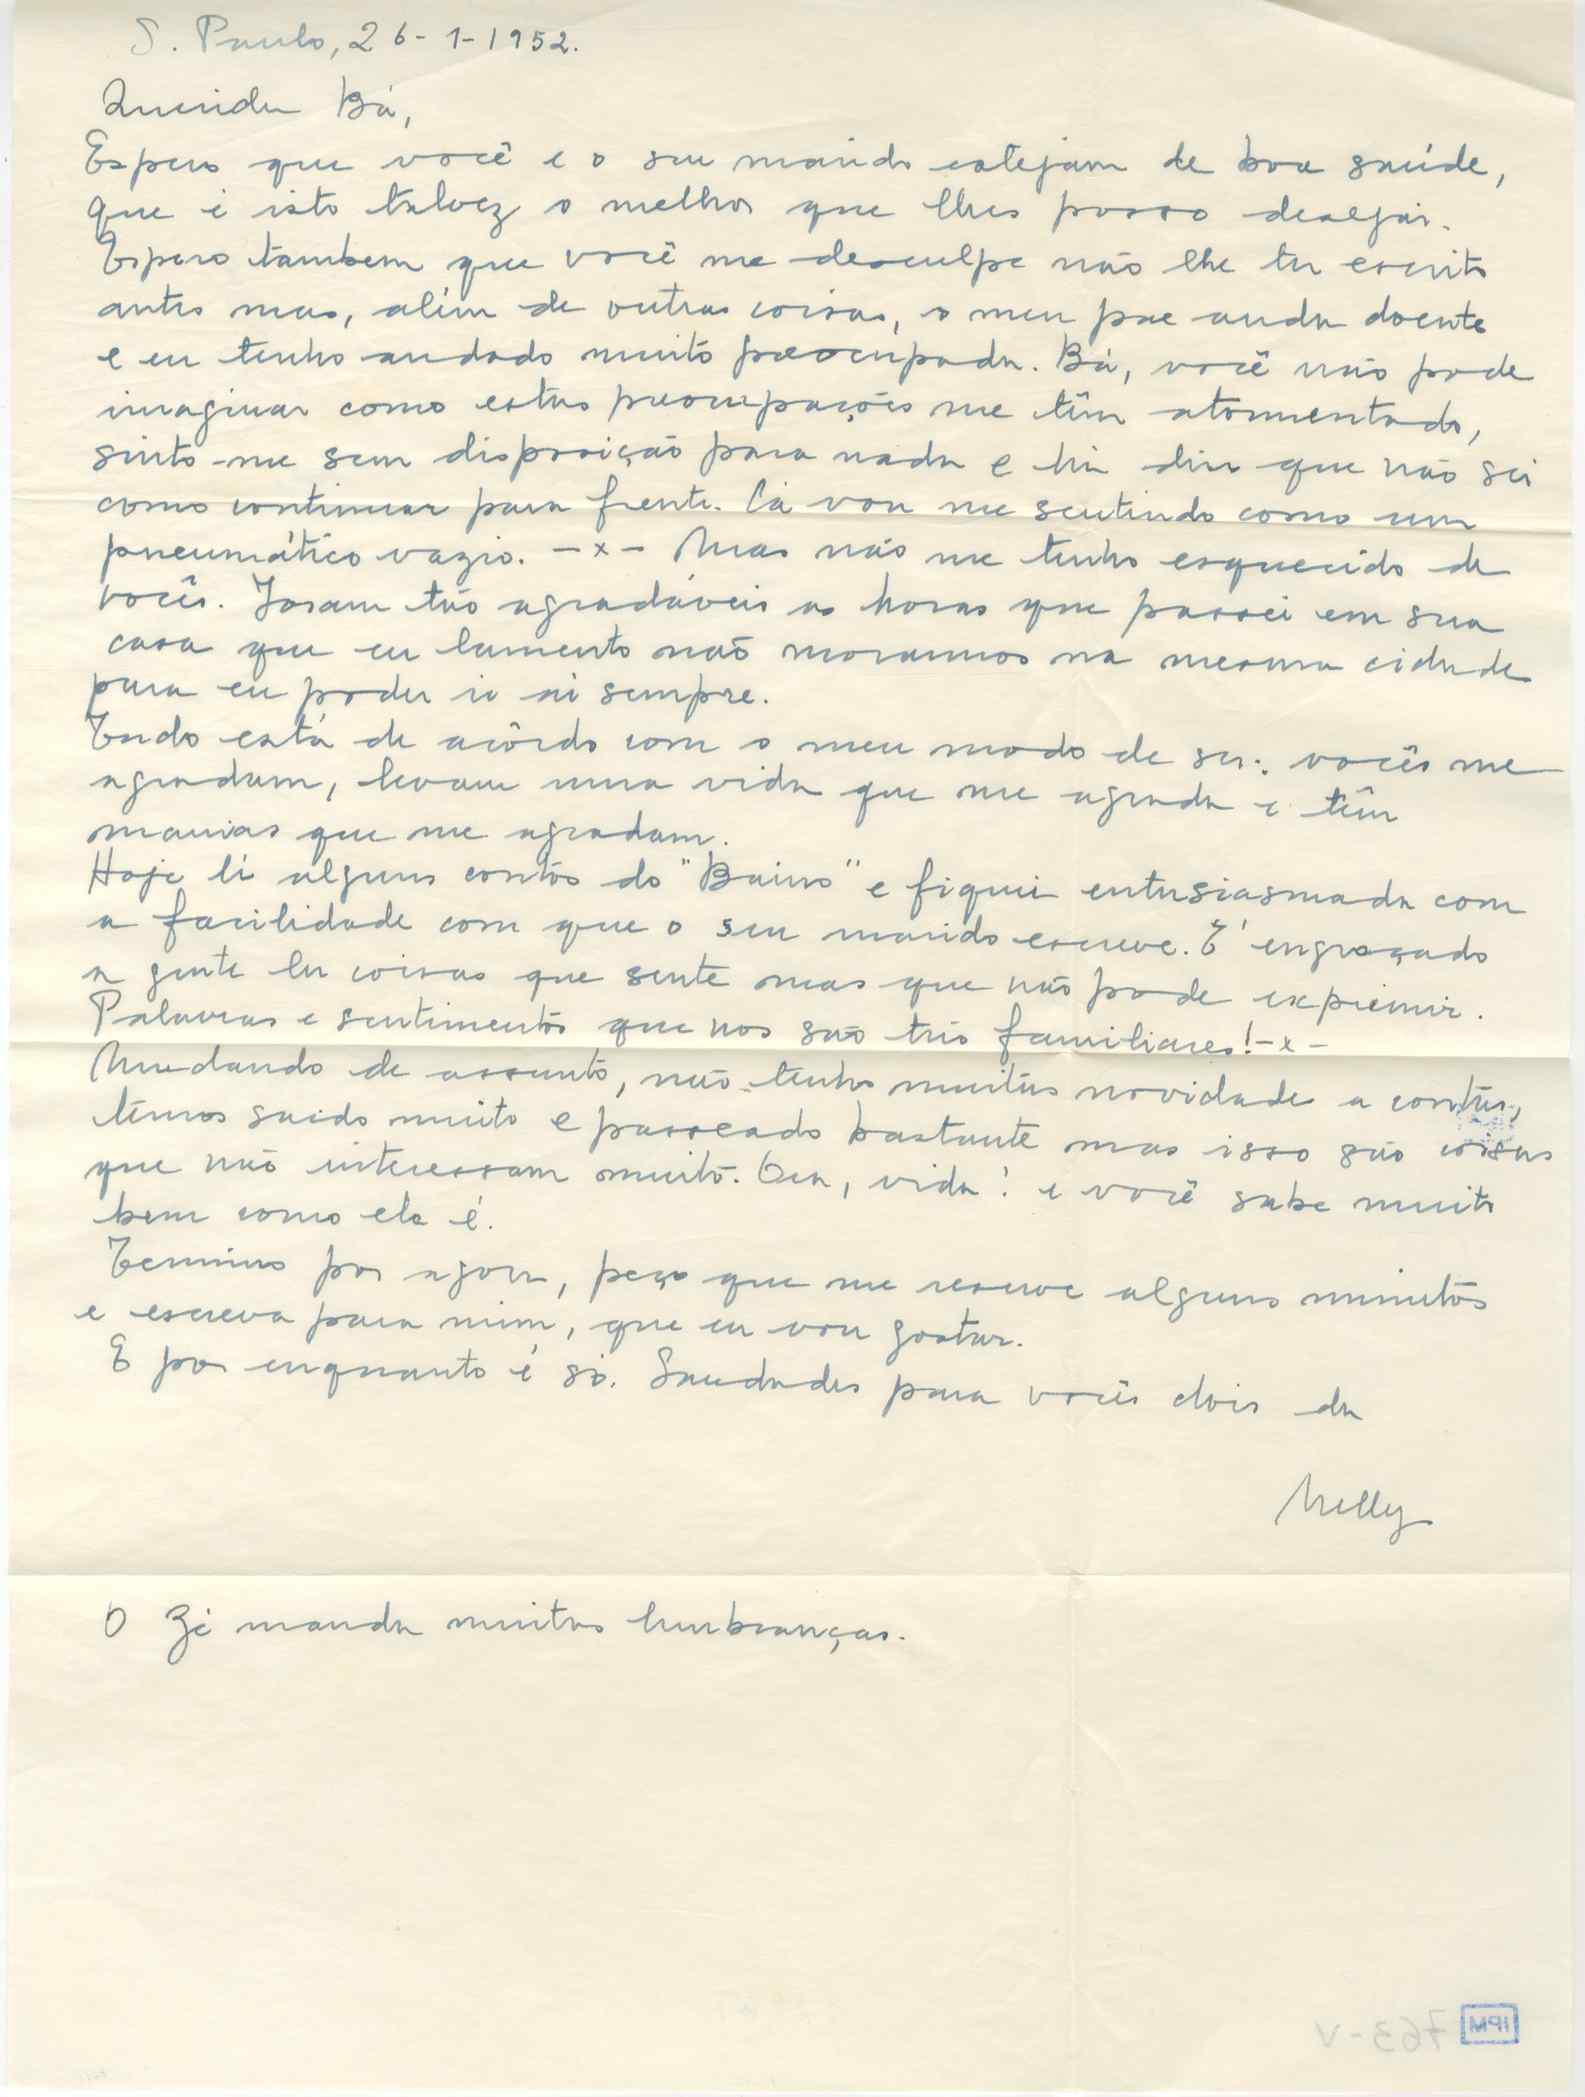 S. Paulo, 26-1-1952.
Querida Bá,
Espero que você e o seu marido estejam de boa saúde,
que é isto talvez o melhor que lhes posso desejar.
Espero tambem que você me desculpe não lhe ter escrito
antes mas, além de outras coisas, o meu pae anda doente
e eu tenho andado muito preocupada. Bá, você não pode
imaginar como estas preocupações me têm atormentado,
sinto-me sem disposição para nada e há dias que não sei
como continuar para frente. Cá vou me sentindo como um
pneumático vazio. -x- Mas não me tenho esquecido de
vocês. Foram tão agradáveis as horas que passei em sua
casa que eu lamento não morarmos na mesma cidade
para eu poder ir aí sempre.
Tudo está de acôrdo com o meu modo de ser: vocês me
agradam, levam uma vida que me agrada e têm
manias que me agradam.
Hoje li alguns contos do "Bairro" e fiquei entusiasmada com
a facilidade com que o seu marido escreve. É engraçado
a gente ler coisas que sente mas que não pode exprimir.
Palavras e sentimentos que nos são tão familiares! -x-
Mudando de assunto, não tenho muitas novidade a contar,
temos saido muito e passeado bastante mas isso são coisas
que não interessam muito. Ora, vida! e você sabe muito
bem como ela é.
Termino por agora, peço que me reserve alguns minutos
e escreva para mim, que eu vou gostar.
E por enquanto é só. Saudades para vocês dois da
Nelly
O Zé manda muitas lembranças.
763-V
IPM